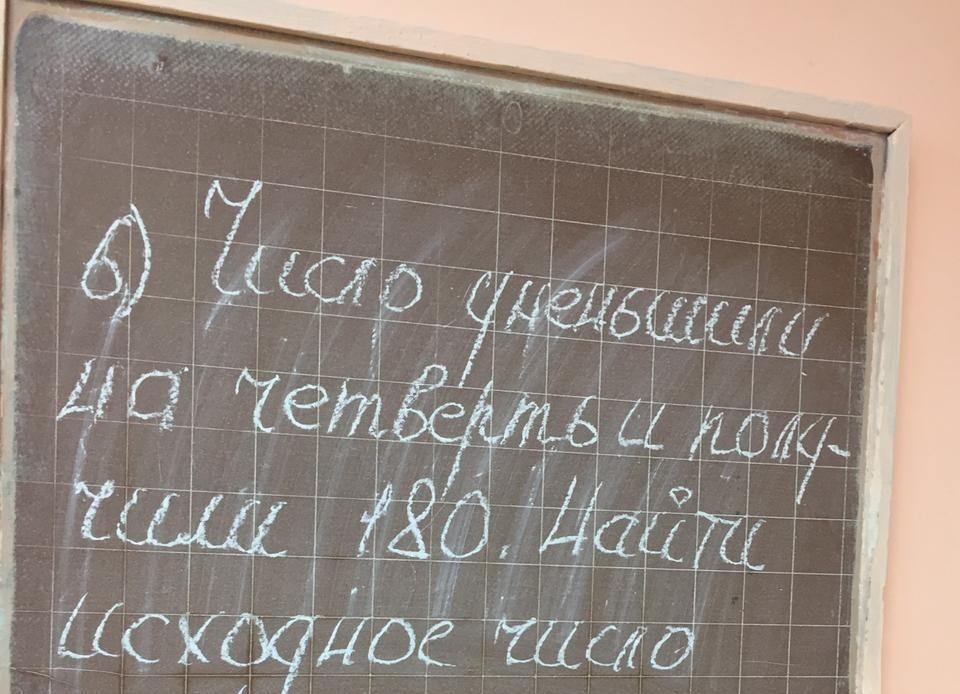 в) Число уменьшили
на четверть и полу-
чили 180. Найти
исходное число